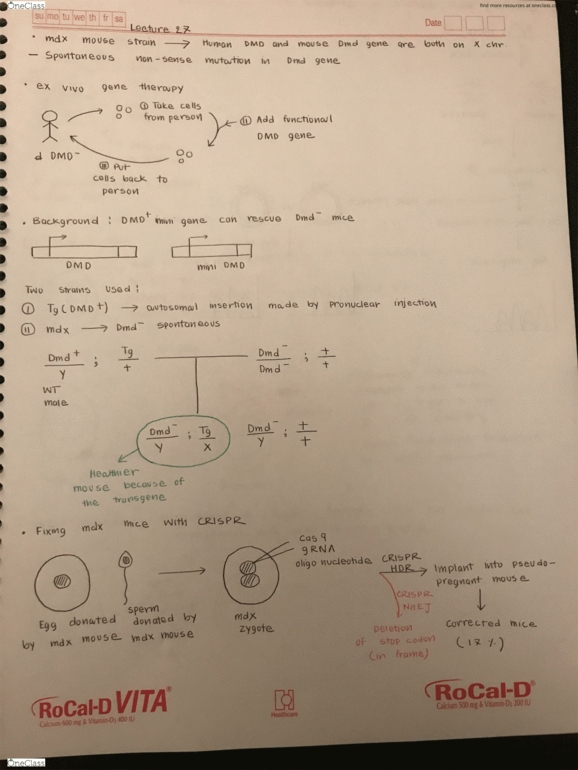 OneClass
find more resources at oneclass.com
su mo tu we th fr sa
Date
Lecture 27
• mdx mouse strain → Human DMD and mouse Dmd gene are both on X chr.
– Spontaneous non-sense mutation in Dmd gene
• ex vivo gene therapy
① Take cells from person
② Add functional DMD gene
♂ DMD⁻
③ Put cells back to person
• Background : DMD⁺ mini gene can rescue Dmd⁻ mice
DMD
mini DMD
Two strains used :
ⓘ Tg (DMD⁺) → autosomal insertion made by pronuclear injection
ⓘⓘ mdx → Dmd⁻ spontaneous
Dmd⁺/Y ; Tg/+
Dmd⁻/Dmd⁻ ; +/+
WT
male
Dmd⁻/Y ; Tg/X
Dmd⁻/Y ; +/+
Healthier
mouse because of
the transgene
• Fixing mdx mice with CRISPR
Cas 9
gRNA
oligo nucleotide
CRISPR
HDR
Implant into pseudo-
pregnant mouse
CRISPR
NHEJ
Egg donated
by mdx mouse
sperm
donated by
mdx mouse
mdx
zygote
Deletion
of stop codon
(in frame)
corrected mice
(12 %)
RoCal-D VITA®
Calcium 600 mg & Vitamin-D₃ 400 IU
Healthcare
RoCal-D®
Calcium 500 mg & Vitamin-D₃ 200 IU
OneClass